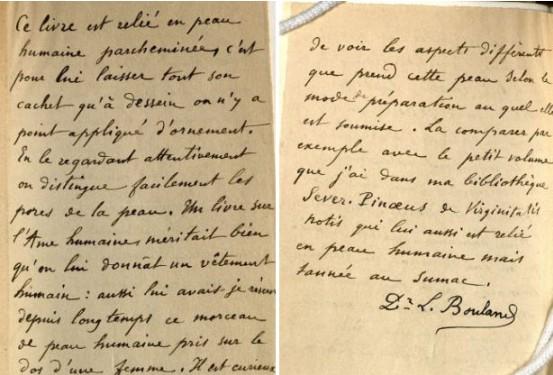 Ce livre est relié en peau
humaine parcheminée, c'est
pour lui laisser tout son
cachet qu'à dessein on n'y a
point appliqué d'ornement.
En le regardant attentivement
on distingue facilement les
pores de la peau. Un livre sur
l'Ame humaine méritait bien
qu'on lui donnât un vêtement
humain : aussi lui avais-je réservé
depuis longtemps ce morceau
de peau humaine pris sur le
dos d'une femme. Il est curieux
de voir les aspects différents
que prend cette peau selon le
mode de préparation au quel elle
est soumise. La comparer par
exemple avec le petit volume
que j'ai dans ma bibliothèque
Sever. Pinaeus de Virginitatis
notis qui lui aussi est relié
en peau humaine mais
tannée au sumac.
Dr L. Bouland